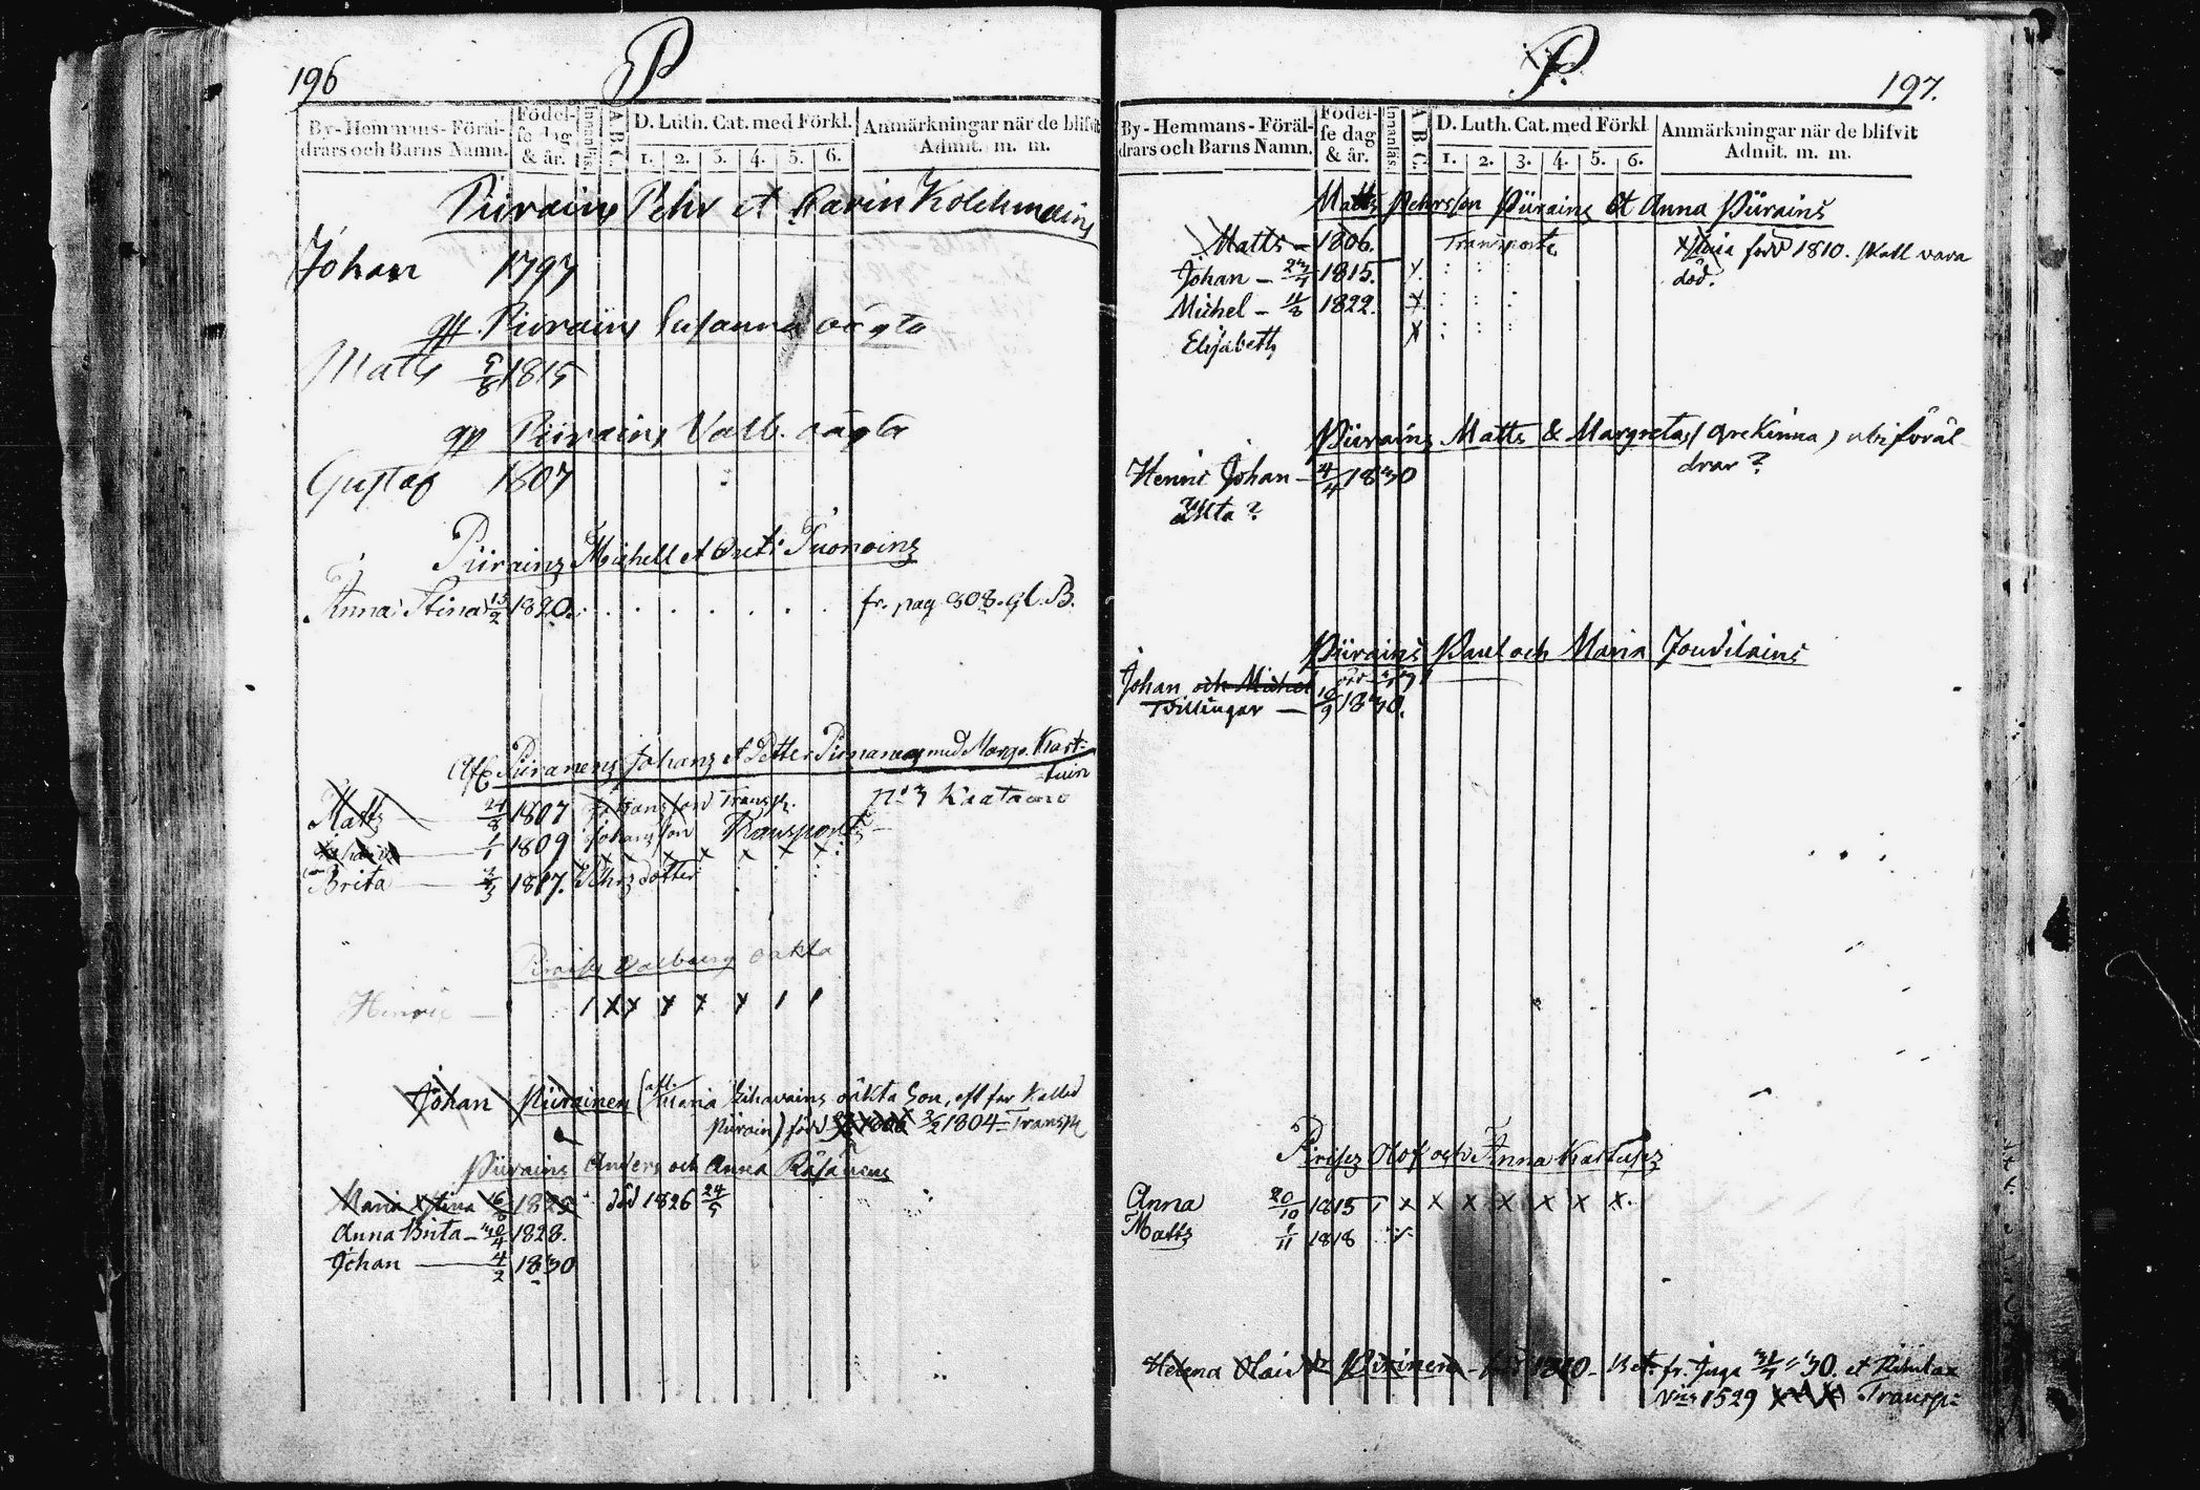 196
P
By-Hemmans-Föräl-
drars och Barns Namn.
Födel-
se dag
& år.
Innanläs.
A B C.
D. Luth. Cat. med Förkl.
1. 2. 3. 4. 5. 6.
Anmärkningar när de blifvit
Admit. m. m.
Piirains Pehr et Karin Kolehmains
Johan 1797
Piirains Susanna oägta
Matts 1815
Piirains Valb. oägta
Gustaf 1807
Piirains Michell et Greti Tuonoins
Anna Stina 15/2 1820. fr. pag. 808. gl. B.
Piiranens Johans et Petter Piiranens med Marg. Kart-
tuin
Matts 24/8 1807 Johansson Transp. No 3 Kaatamo
1/1 1809 Johansson Transport
Brita 1817. Pehrsdotter
Valborg oäkta
Henric 1 x x x x x 1 1
Johan Piirainen (Maria Lihavains oäkta Son, eft far kallad
Piirain) född 3/2 1804 - Transp
Piirains Anders och Anna Räsänens
Maria Stina 1825 död 1826 24/5
Anna Brita - 30/4 1828.
Johan 4/2 1830
P.
197.
By-Hemmans-Föräl-
drars och Barns Namn.
Födel-
se dag
& år.
Innanläs.
A B C.
D. Luth. Cat. med Förkl
1. 2. 3. 4. 5. 6.
Anmärkningar när de blifvit
Admit. m. m.
Matts Pehrsson Piirains et Anna Piirains
Matts - 1806. Transport
född 1810. skall vara
död.
Johan - 1815.
Michel - 11/8 1822.
Elisabeth
Piirains Matts & Margreta ubi föräl-
drar?
Henric Johan - 4/4 1830
äkta?
Piirains Paul och Maria Jouvilains
Johan och Michel
Tvillingar - 16/9 1830.
Olof och Anna
Anna 20/10 1815 x x x x x x x.
Matts 1/11 1818
Helena - 1810 - fr. 30. et
1529 Transp: